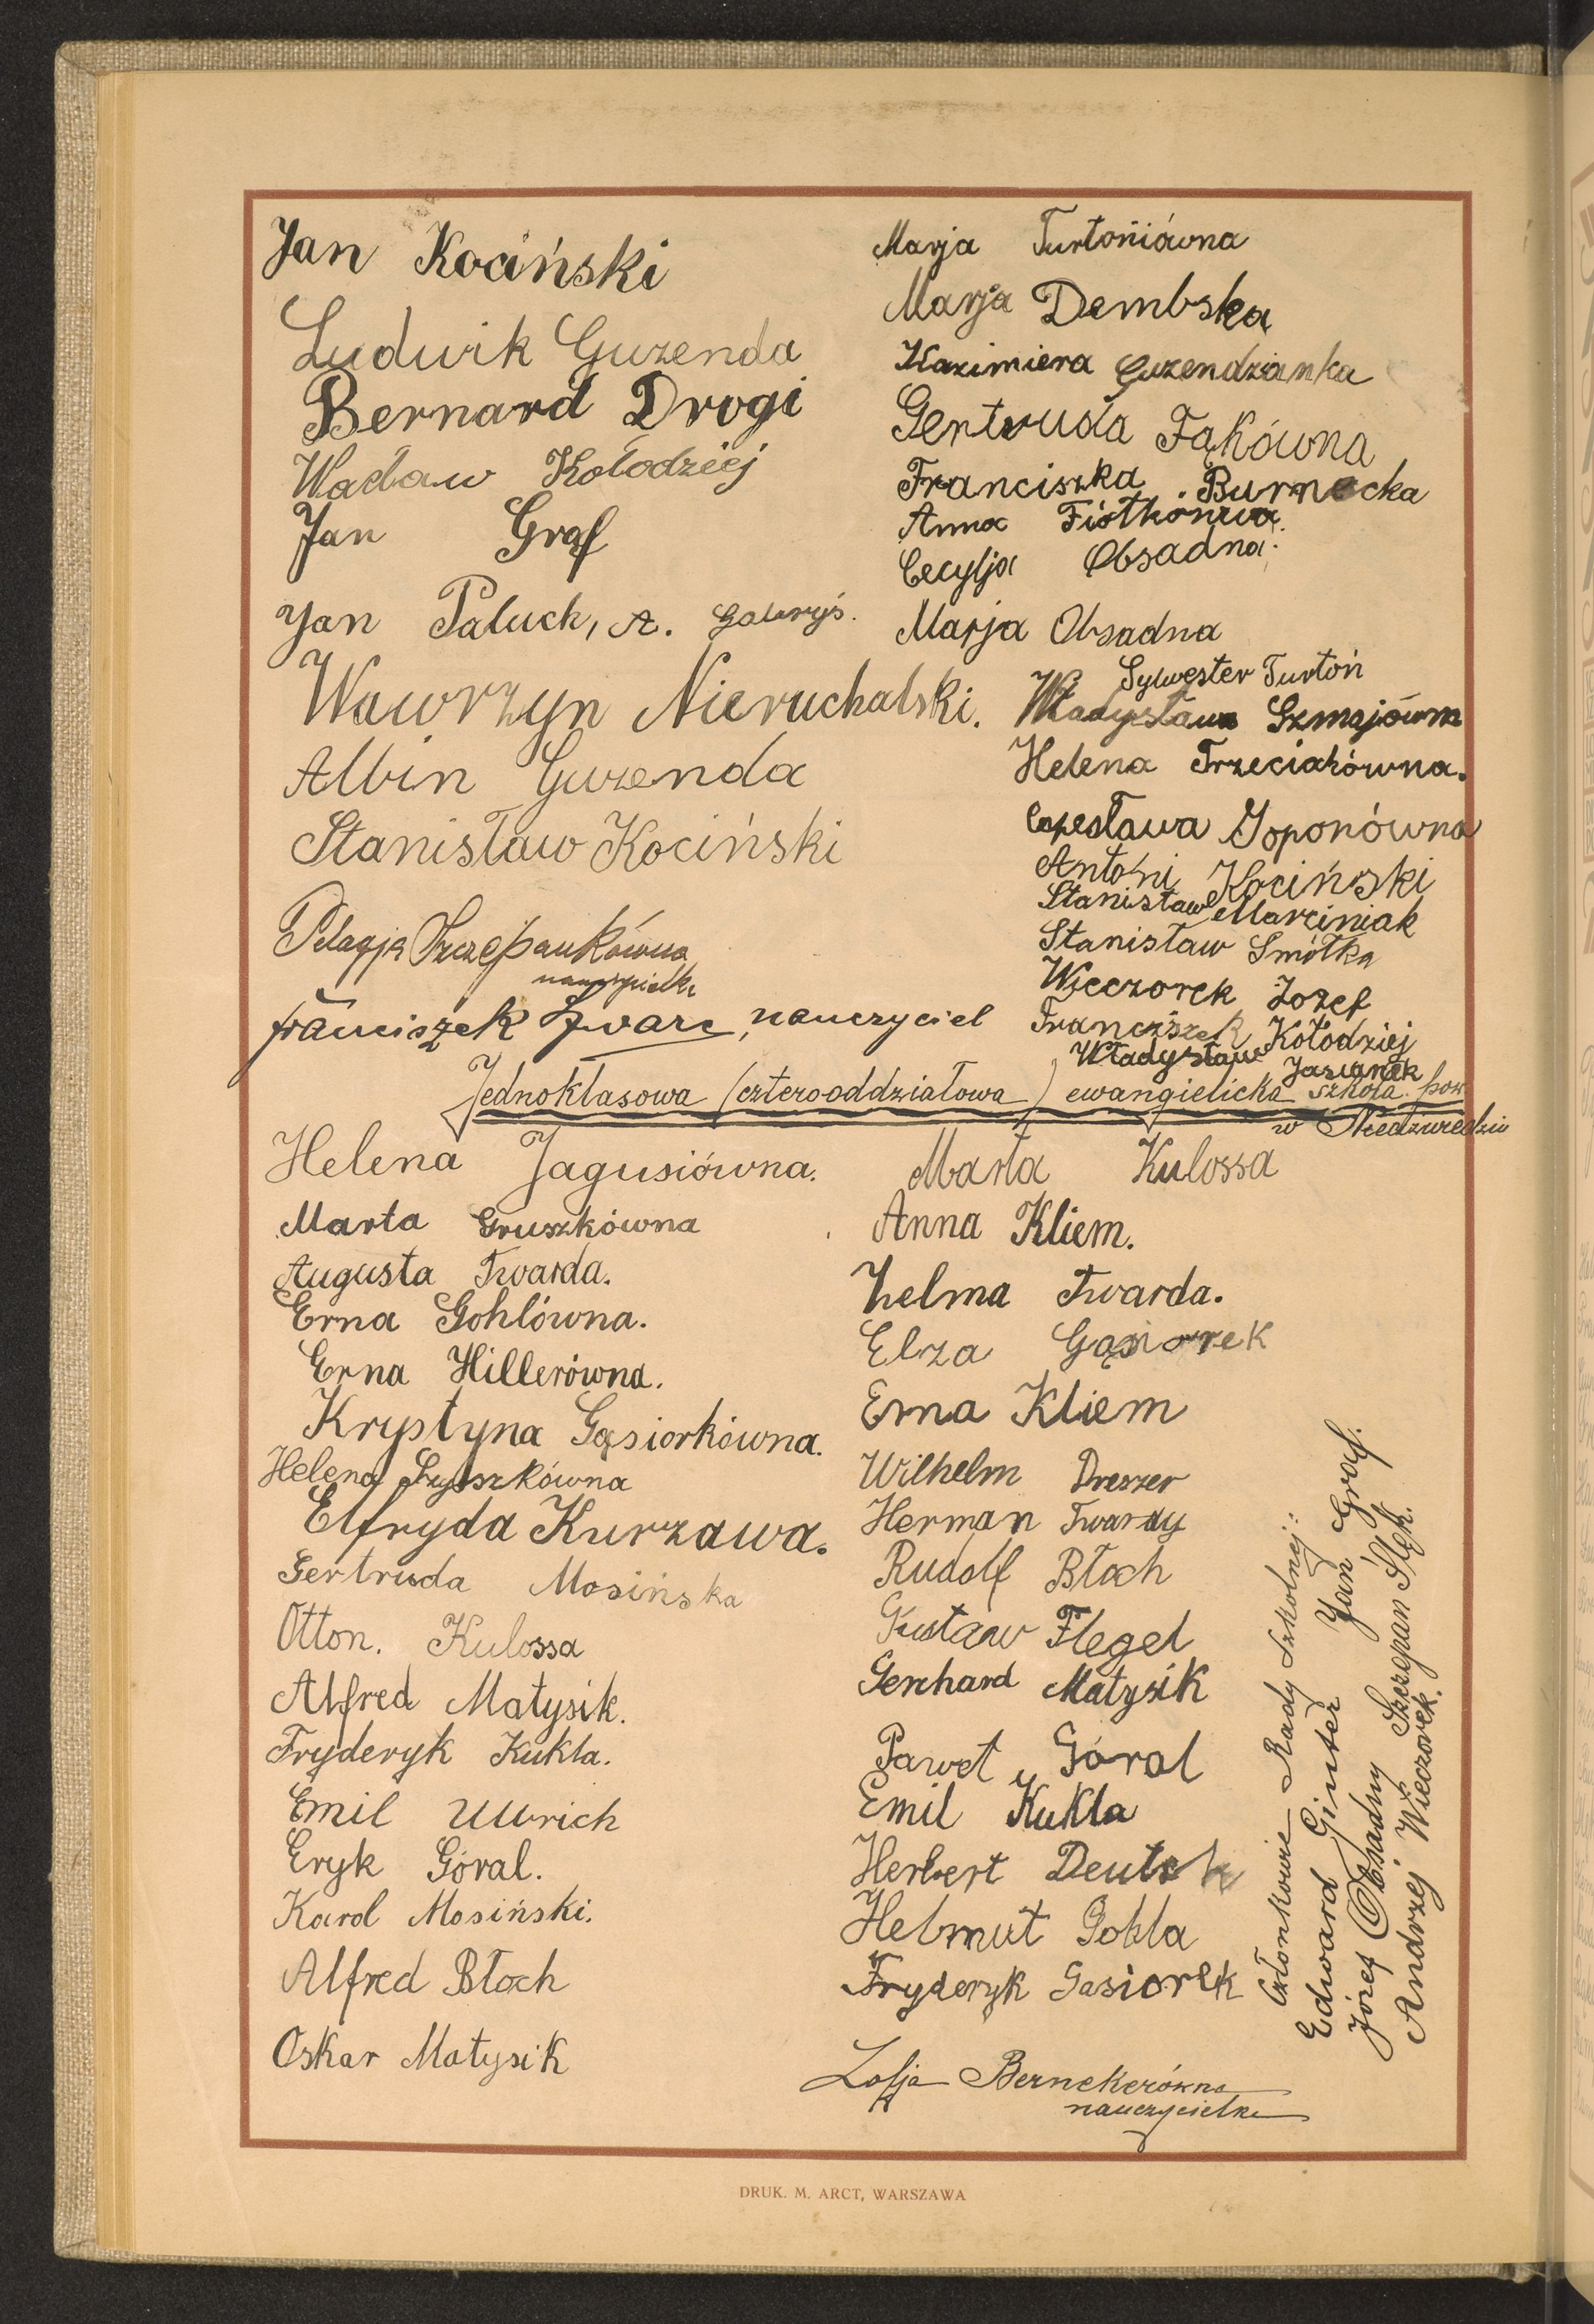 Jan Kociński
Ludwik Guzenda
Bernard Drogi
Wacław Kołodziej
Jan Graf
Jan Paluch, A.
Wawrzyn Nieruchalski.
Albin Guzenda
Stanisław Kociński
Pelagja Szczepankówna
nauczycielka
Franciszek Szwarc, nauczyciel
Marja Turtoniówna
Marja Dembska
Kazimiera Guzendzianka
Gertruda Fąkówna
Franciszka Burnecka
Anna Fiołkówna.
Cecylja Obsadna.
Marja Obsadna
Sylwester Turtoń
Władysława Szmajówna
Helena Trzeciakówna.
Czesława Goponówna
Antoni Kociński
Stanisław Marciniak
Stanisław Smółka
Wieczorek Józef
Franciszek Kołodziej
Władysław Jasianek
Jednoklasowa (czterooddziałowa) ewangielicka szkoła pow.
w Niedźwiedziu
Helena Jagusiówna.
Marta Gruszkówna
Augusta Twarda.
Erna Gohlówna.
Erna Hillerówna.
Krystyna Gąsiorkówna.
Helena
Elfryda Kurzawa.
Gertruda Mosińska
Otton. Kulossa
Alfred Matysik.
Fryderyk Kukla.
Emil Ullrich
Eryk Góral.
Karol Mosiński.
Alfred Błoch
Oskar Matysik
Marta Kulossa
Anna Kliem.
Helma Twarda.
Elza Gąsiorek
Erna Kliem
Wilhelm Drezzer
Herman Twardy
Rudolf Błoch
Gustaw Flegel
Gerchard Matysik
Paweł Góral
Emil Kukla
Herbert Deutsh
Helmut Gohla
Fryderyk Gasiorek
Zofja Bernekerówna
nauczycielka
Członkowie Rady Szkolnej:
Edward Ginter Jan Graf.
Józef Obsadny Szczepan Stęk.
Andrzej Wieczorek.
DRUK. M. ARCT, WARSZAWA